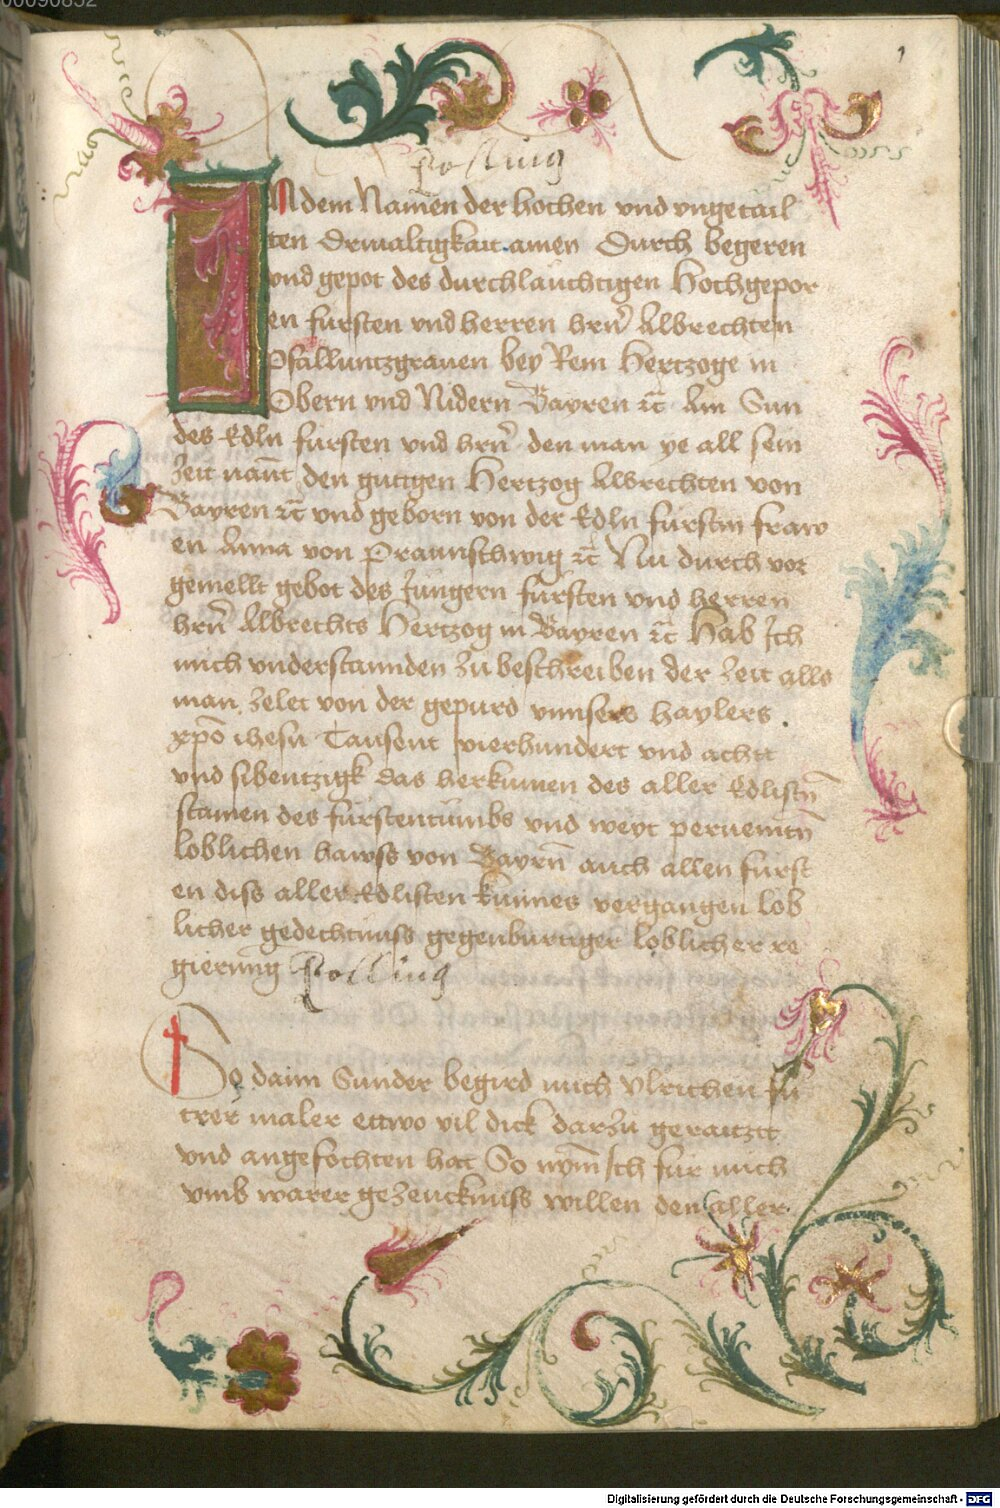 00090852
1
Polling
IN dem Namen der hochen vnd vngetail
ten Drivaltigkait amen Durch begeren
vnd gepot des durchlauchtigen Hochgepor
en fursten vnd herren hrn̄ Albrechten
Pfalluntzgrauen bey Rein Hertzoge in
Obern vnd Nidern Bayren ꝛc̄ Ain Sun
des Edln fürsten vnd hrn̄ den man ye all sein
Zeit nan̄t den gütigen Hertzog Albrechten von
Bayren ꝛc̄ vnd geborn von der Edln fürstin fraw
en Anna von Praunschwig ꝛc̄ Nu durch vor
gemellt gebot des Jungern fürsten vnd herren
hrn̄ Albrechts Hertzog in Bayren ꝛc̄ Hab Jch
mich vnderstannden zu beschreiben der zeit alls
man zelet von der gepurd vnnsers haylers
xpō ihesu Tausent vierhundert vnd achtt
vnd sibentzigk das herkumen des aller Edlistn̄
stamen des fürstentumbs vnd weyt peruemtn̄
loblichen hawss von Bayrn̄ auch allen fürst
en diss aller Edlisten künnes vergangen lob
licher gedechtnuss gegenburtiger loblicher re
gierung Polling
So dann Sunder begird mich Vlrichen Fü
trer maler ettwo vil dick darzu geraitztt
vnd angefochten hat So nym̄ Jch für mich
vmb warer gezeucknuss willen den aller
Digitalisierung gefördert durch die Deutsche Forschungsgemeinschaft - DFG